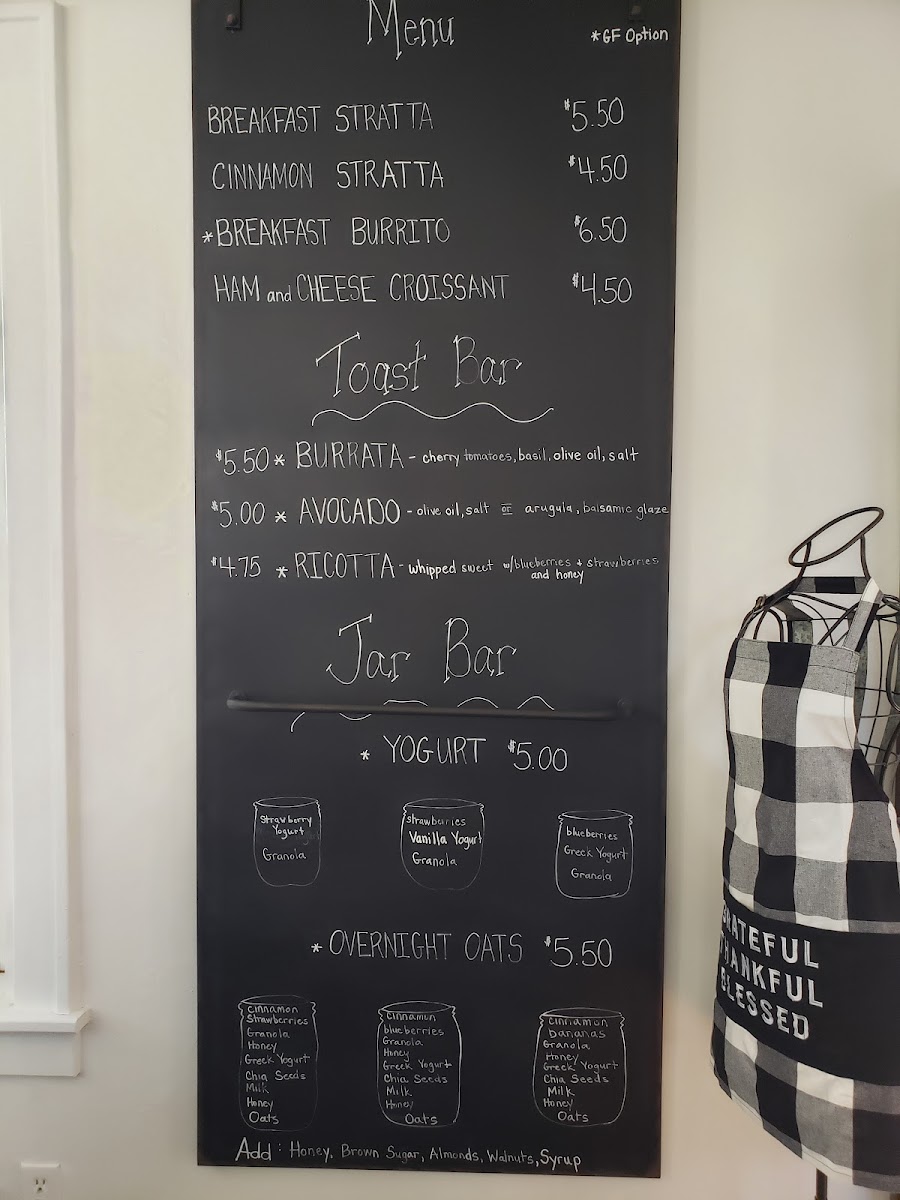 Menu
*GF Option
BREAKFAST STRATTA $5.50
CINNAMON STRATTA $4.50
*BREAKFAST BURRITO $6.50
HAM and CHEESE CROISSANT $4.50
Toast Bar
$5.50 * BURRATA - cherry tomatoes, basil, olive oil, salt
$5.00 * AVOCADO - olive oil, salt or arugula, balsamic glaze
$4.75 * RICOTTA - whipped sweet w/blueberries + strawberries
and honey
Jar Bar
* YOGURT $5.00
Strawberry
Yogurt
Granola
strawberries
Vanilla Yogurt
Granola
blueberries
Greek Yogurt
Granola
* OVERNIGHT OATS $5.50
cinnamon
Strawberries
Granola
Honey
Greek Yogurt
Chia Seeds
Milk
Honey
Oats
cinnamon
blueberries
Granola
Honey
Greek Yogurt
Chia Seeds
Milk
Honey
Oats
cinnamon
bananas
Granola
Honey
Greek Yogurt
Chia Seeds
Milk
Honey
Oats
Add: Honey, Brown Sugar, Almonds, Walnuts, Syrup
RATEFUL
THANKFUL
BLESSED